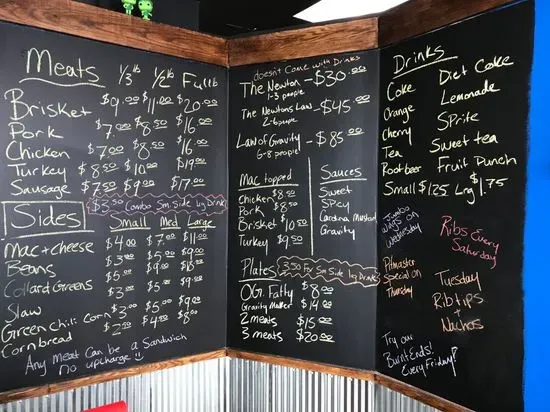 Meats 1/3 lb 1/2 lb Full lb
Brisket $9.00 $11.00 $20.00
Pork $7.00 $8.50 $16.00
Chicken $7.00 $8.50 $16.00
Turkey $8.50 $10.50 $19.00
Sausage $7.50 $9.00 $17.00
$3.50 Combo Sm Side Lg Drink
Sides Small Med Large
Mac + cheese $4.00 $7.00 $11.00
Beans
Collard Greens
Slaw
Green Chili Corn
Cornbread
Any Meat Can be a Sandwich
no upcharge
doesn't Come with Drinks
The Newton - $30.00
1-3 people
The Newtons Law - $45.00
2-6 people
Law of Gravity - $85.00
6-8 people
Mac topped
Chicken $8.50
Pork $8.50
Brisket $10.50
Turkey $9.50
Sauces
Sweet
Spicy
Carolina Mustard
Gravity
Plates
3.50 Sm Side Lg Drink
O.G. Fatty $8.00
Gravity Maker $14.00
2 meats $15.00
3 meats $20.00
Drinks
Coke Diet Coke
Orange Lemonade
Cherry Sprite
Tea Sweet tea
Root beer Fruit Punch
Small $1.25 Lrg $1.75
Jumbo
Wings on
Wednesday
Pitmaster
Special on
Thursday
Try our
Burnt Ends!
Every Friday!
Ribs Every
Saturday
Tuesday
Rib tips
+
Nachos